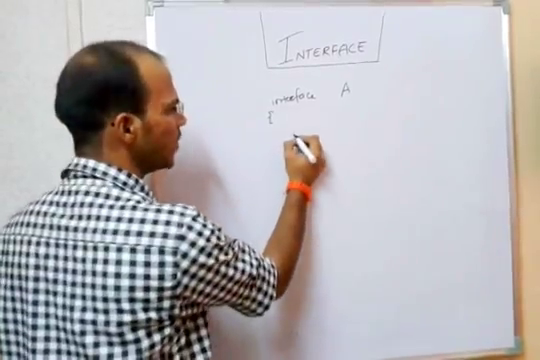 INTERFACE
interface A
{